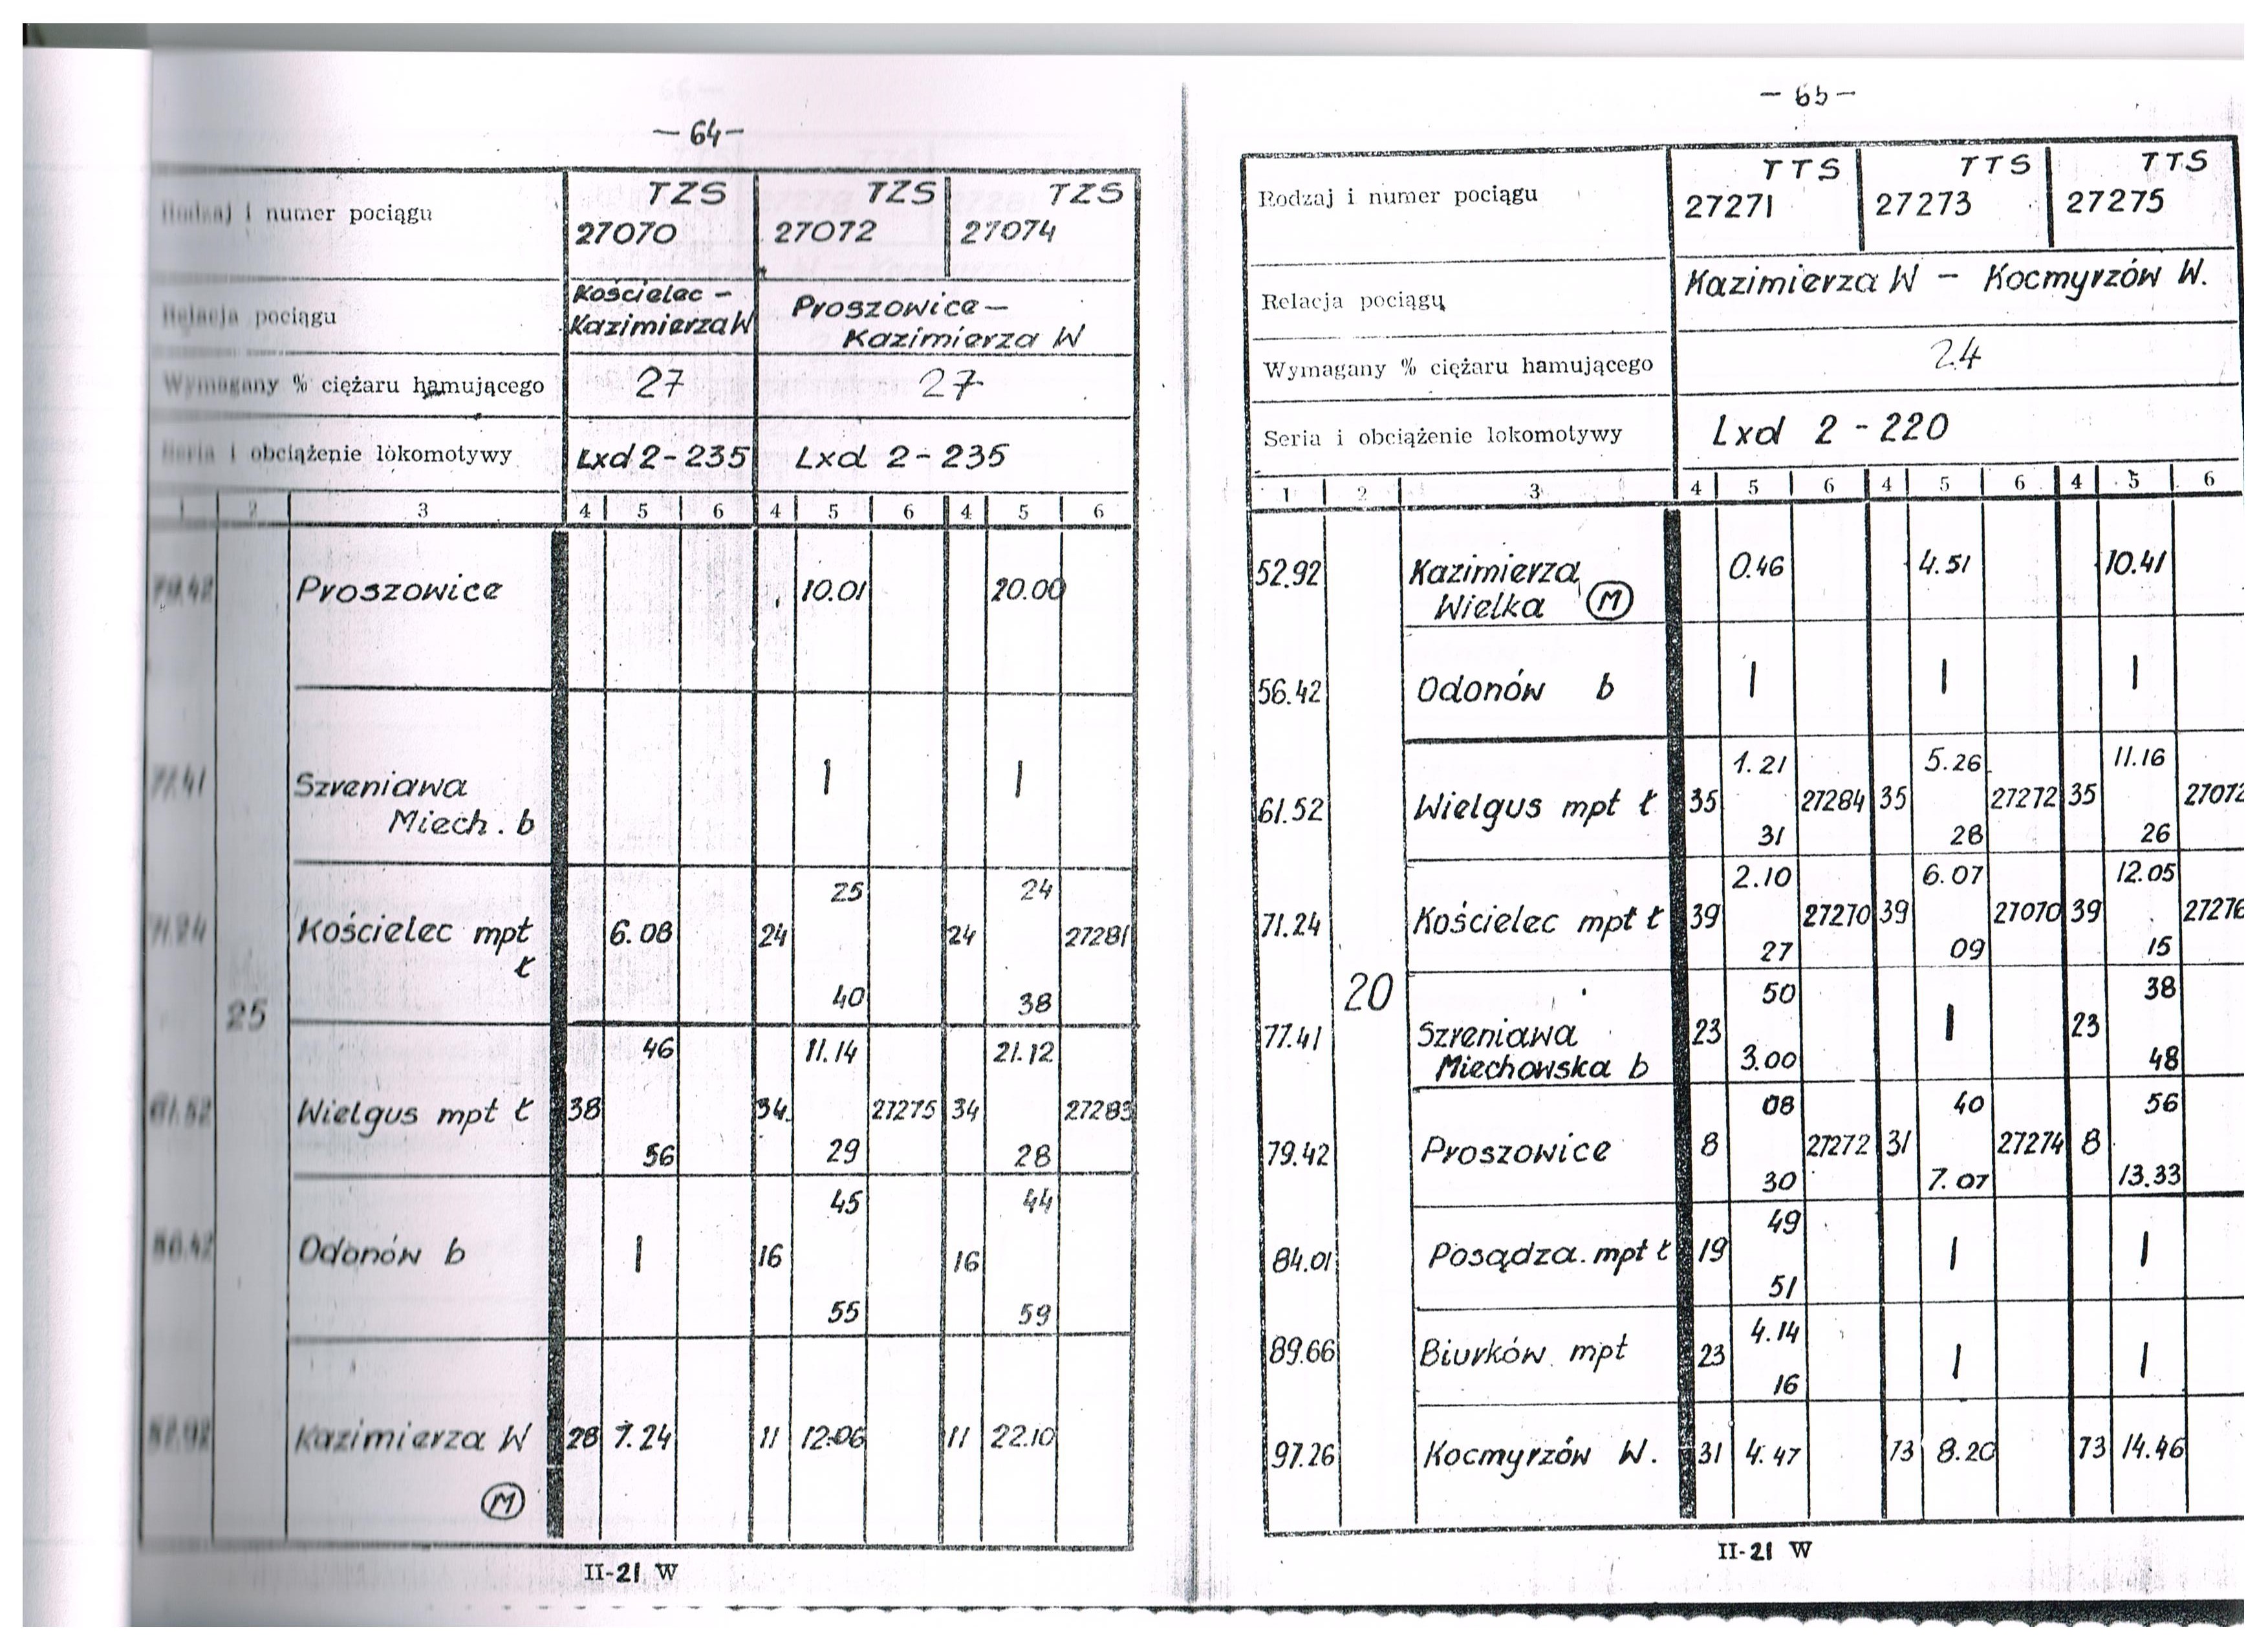 — 64 —
Rodzaj i numer pociągu TZS TZS TZS
27070 27072 27074
Relacja pociągu Kościelec – Kazimierza W Proszowice – Kazimierza W
Wymagany % ciężaru hamującego 27 27
Seria i obciążenie lokomotywy Lxd 2 - 235 Lxd 2 - 235
1 2 3 4 5 6 4 5 6 4 5 6
79.42 Proszowice 10.01 20.00
77.41 Szreniawa | |
Miech. b
25 24
71.24 Kościelec mpt 6.08 24 24 27281
ł
40 38
25
46 11.14 21.12
61.52 Wielgus mpt ł 38 34 27275 34 27283
56 29 28
45 44
56.42 Odonów b | 16 16
55 59
52.92 Kazimierza W 28 7.24 11 12.06 11 22.10
M
II-21 W
— 65 —
Rodzaj i numer pociągu TTS TTS TTS
27271 27273 27275
Relacja pociągu Kazimierza W – Kocmyrzów W.
Wymagany % ciężaru hamującego 24
Seria i obciążenie lokomotywy Lxd 2 - 220
1 2 3 4 5 6 4 5 6 4 5 6
52.92 Kazimierza 0.46 4.51 10.41
Wielka M
56.42 Odonów b | | |
1.21 5.26 11.16
61.52 Wielgus mpt ł 35 27284 35 27272 35 27072
31 28 26
2.10 6.07 12.05
71.24 Kościelec mpt ł 39 27270 39 27070 39 27276
27 09 15
20
50 38
77.41 Szreniawa 23 | 23
Miechowska b 3.00 48
08 40 56
79.42 Proszowice 8 27272 31 27274 8
30 7.07 13.33
49
84.01 Posądza mpt ł 19 | |
51
4.14
89.66 Biurków mpt 23 | |
16
97.26 Kocmyrzów W. 31 4.47 73 8.20 73 14.46
II-21 W